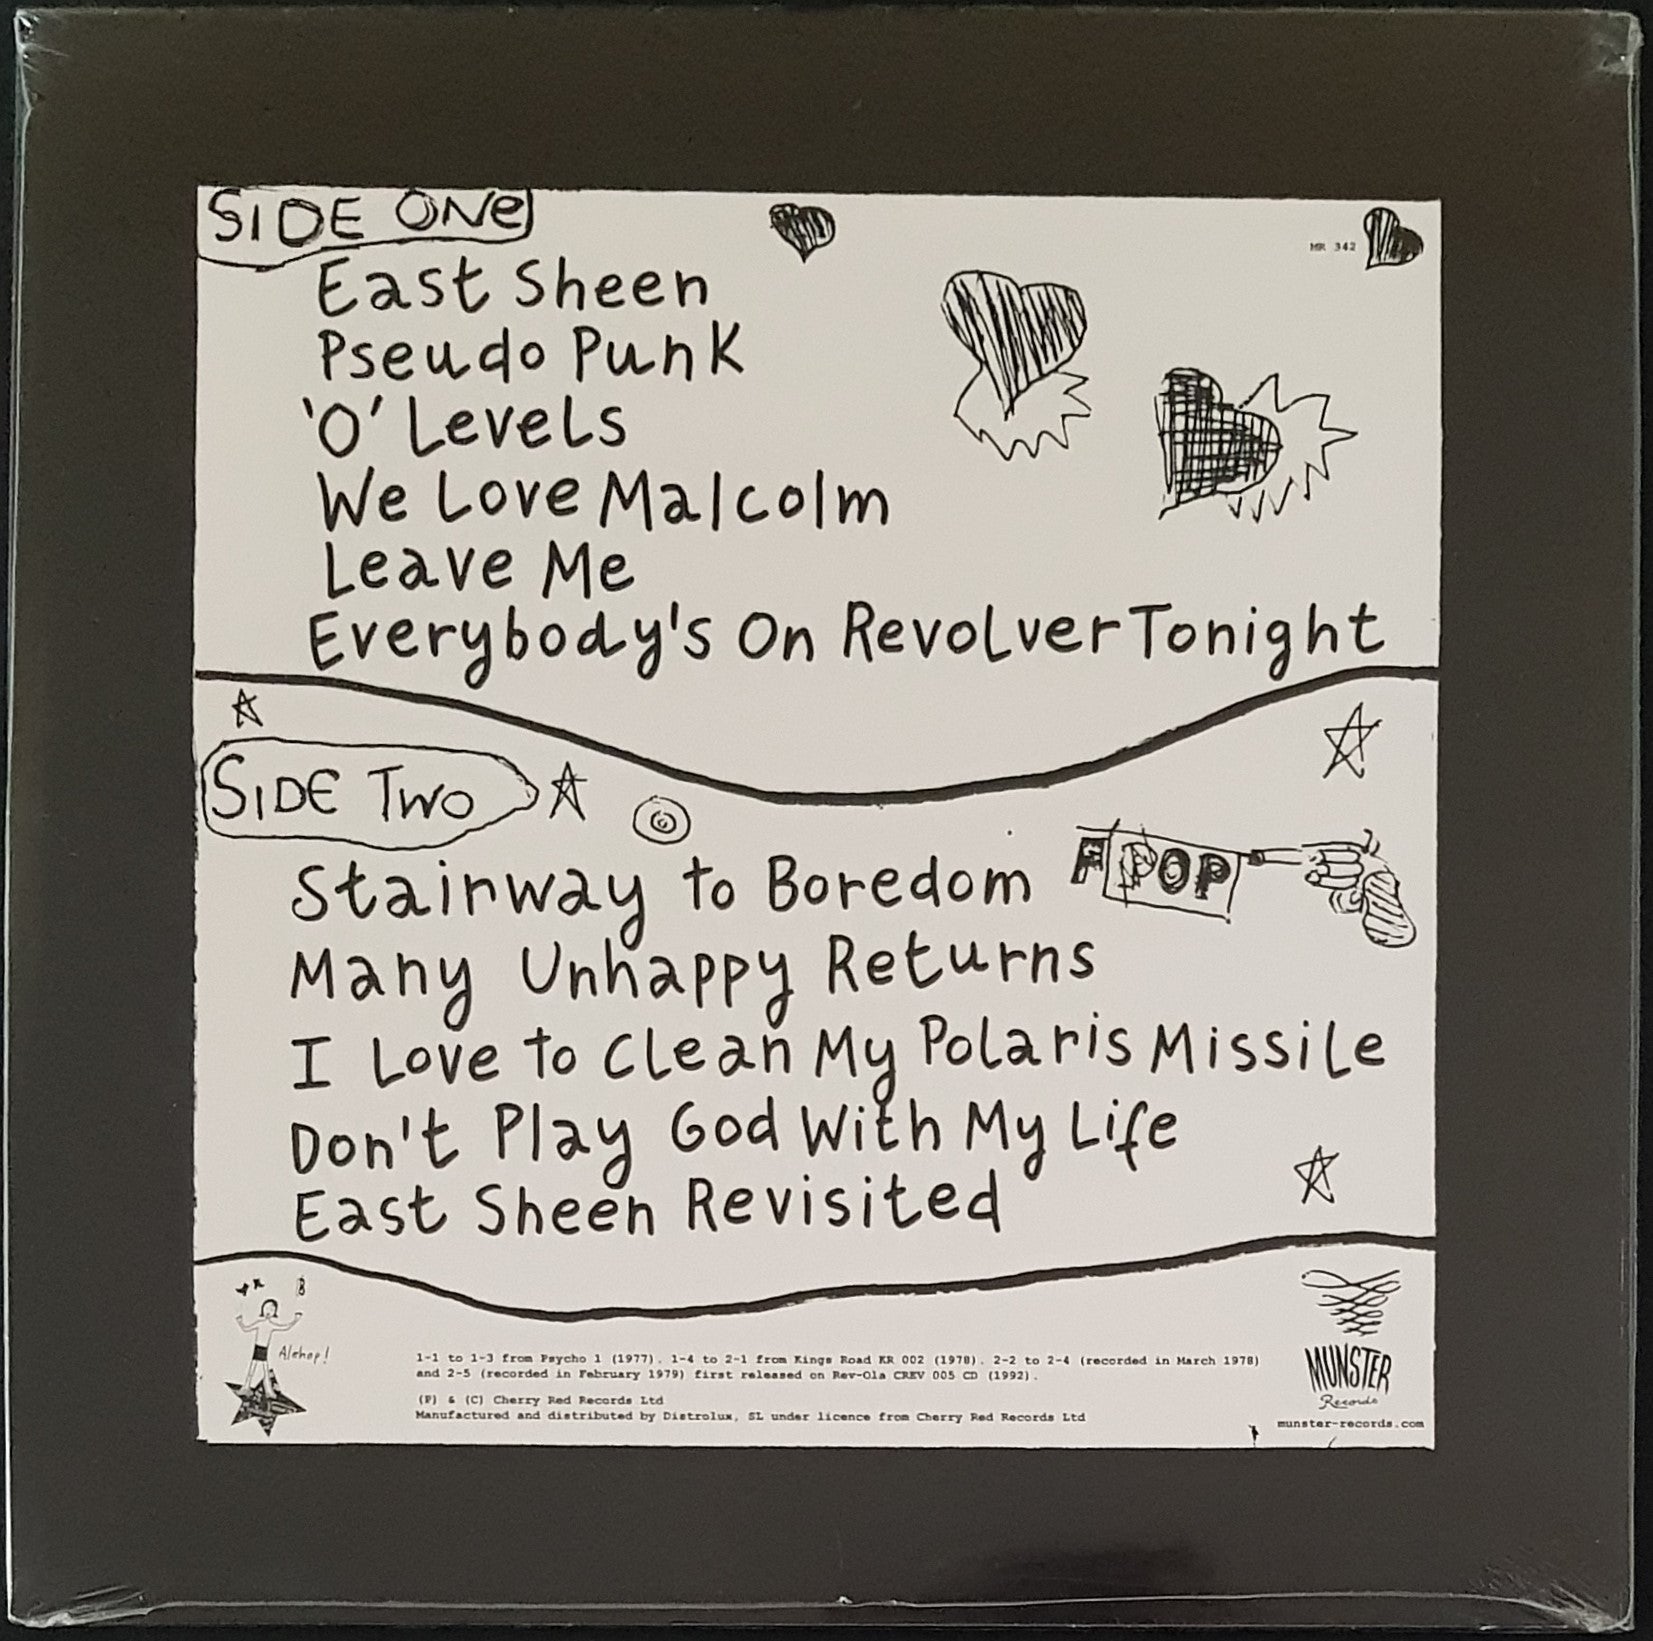 SIDE ONE
MR 342
East Sheen
Pseudo Punk
'O' Levels
We Love Malcolm
Leave Me
Everybody's On Revolver Tonight
SIDE TWO
POP
Stairway to Boredom
Many Unhappy Returns
I Love to Clean My Polaris Missile
Don't Play God With My Life
East Sheen Revisited
Alehop!
1-1 to 1-3 from Psycho 1 (1977). 1-4 to 2-1 from Kings Road KR 002 (1978). 2-2 to 2-4 (recorded in March 1978)
and 2-5 (recorded in February 1979) first released on Rev-Ola CREV 005 CD (1992).
(P) & (C) Cherry Red Records Ltd
Manufactured and distributed by Distrolux, SL under licence from Cherry Red Records Ltd
MUNSTER
Records
munster-records.com